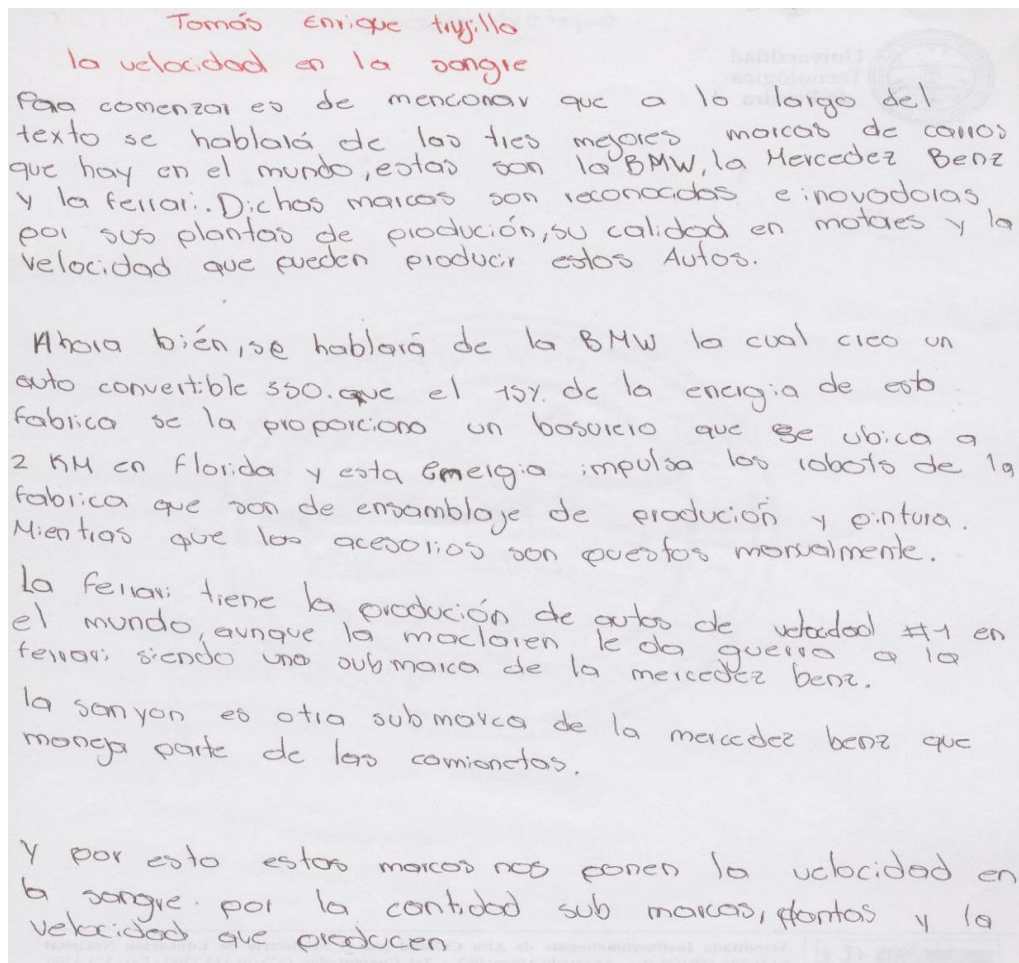 Tomás Enrique trujillo
la velocidad en la sangre
Para comenzar es de mencionar que a lo largo del
texto se hablará de las tres mejores marcas de carros
que hay en el mundo, estas son la BMW, la Mercedez Benz
y la ferrari. Dichas marcas son reconocidas e inovadoras
por sus plantas de produción, su calidad en motores y la
velocidad que pueden producir estos Autos.
Ahora bién, se hablará de la BMW la cual creo un
auto convertible 550. que el 15% de la energia de esta
fabrica se la proporciona un basurero que se ubica a
2 KM en florida y esta emergia impulsa los robots de la
fabrica que son de ensamblaje de produción y pintura.
Mientras que los acesorios son puestos manualmente.
La ferrari tiene la produción de autos de velocidad #1 en
el mundo, aunque la maclaren le da guerra a la
ferrari siendo una submarca de la mercedez benz.
la sanyon es otra submarca de la mercedez benz que
maneja parte de las camionetas.
Y por esto estas marcas nos ponen la velocidad en
la sangre. por la cantidad sub marcas, plantas y la
velocidad que producen
Universidad
Tecnológica